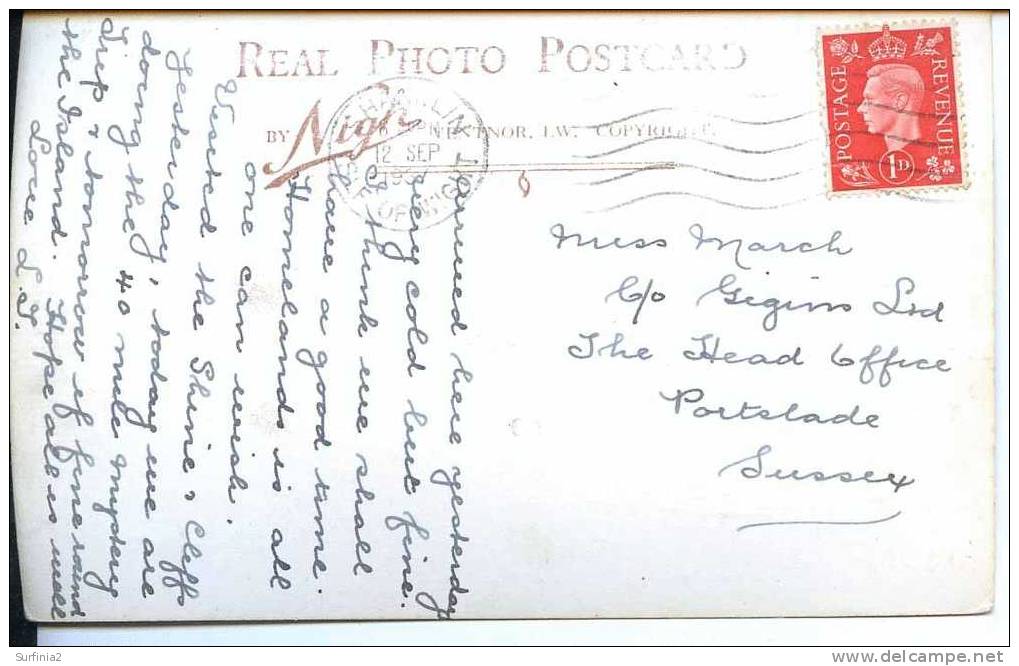 REAL PHOTO POSTCARD
BY Nigh VENTNOR, I.W. COPYRIGHT.
SHANKLIN
12 SEP
ISLE OF WIGHT
POSTAGE REVENUE
1D
Miss March
c/o Gigins Ltd
The Head Office
Portslade
Sussex
Arrived here yesterday
very cold but fine.
I think we shall
have a good time.
Homelands is all
one can wish.
Visited the Shine & Cliffs
Yesterday, today we are
doing the 40 mile mystery
Trip & tomorrow if fine round
the Island. Hope all is well
Love L.T.
Surfinia2
delcampe.net